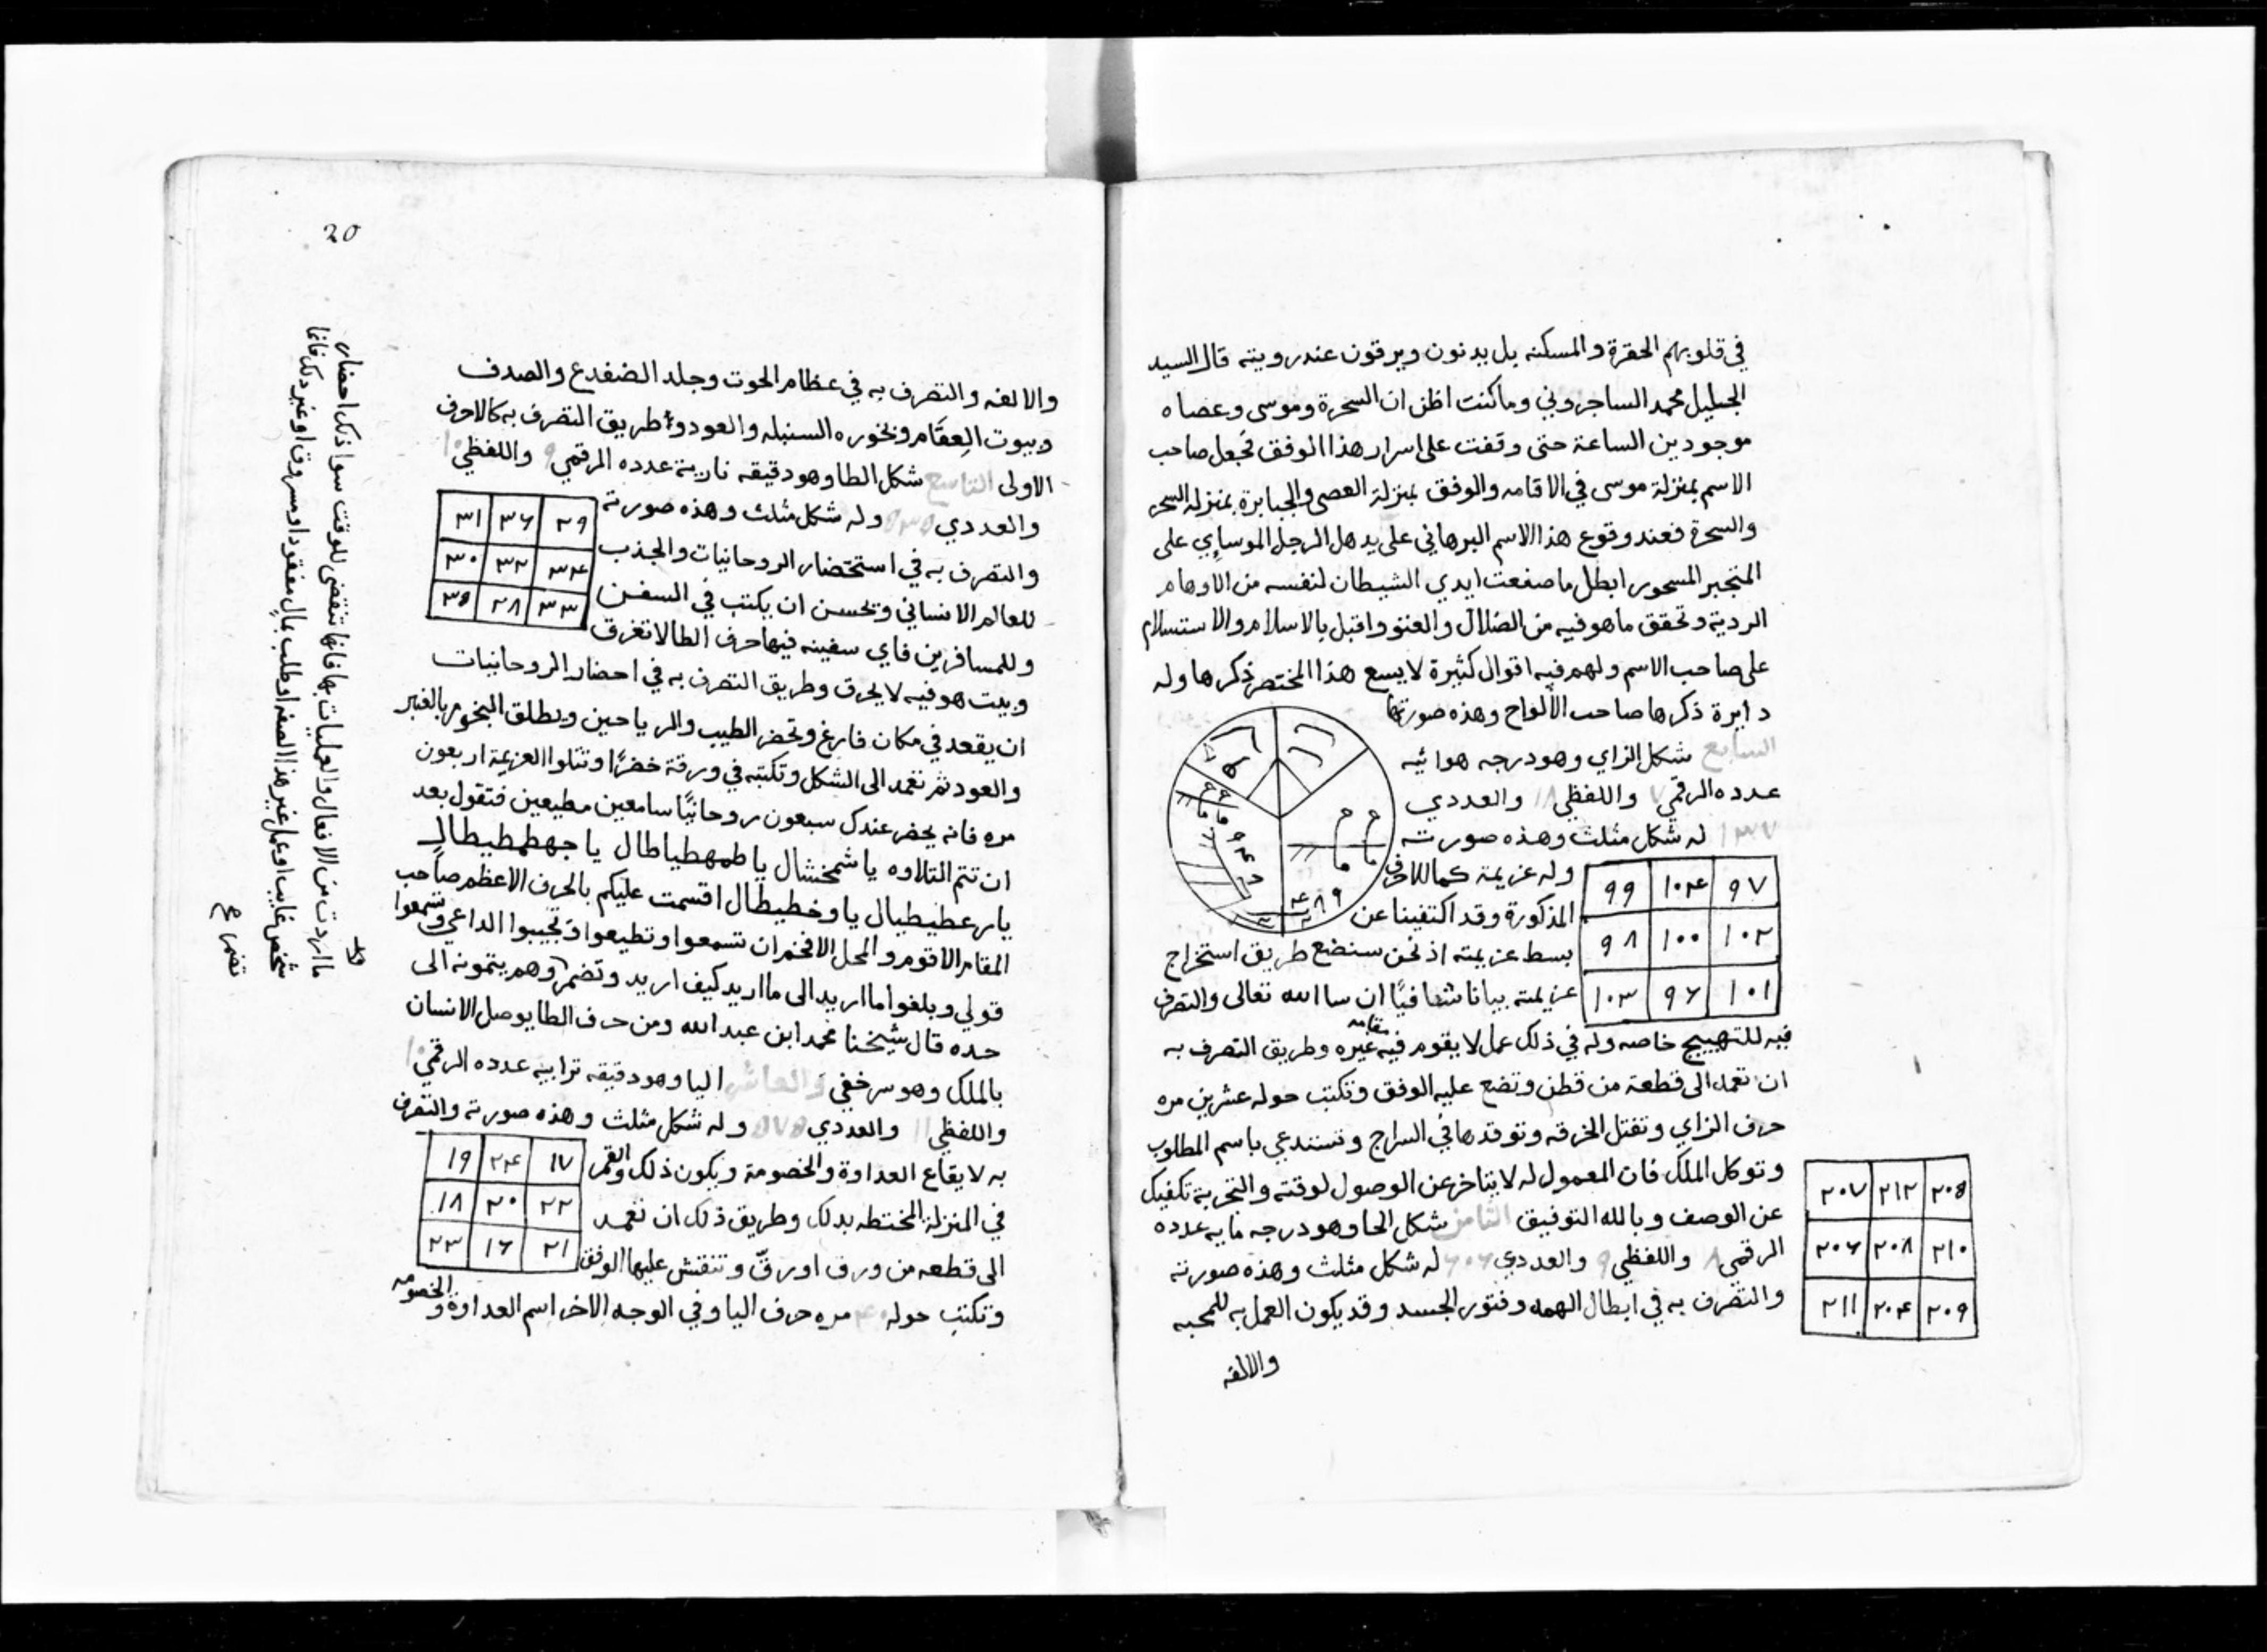 في قلوبهم الحقرة والمسكنه بل يدنون ويرقون عند رويته قال السيد
الجليل محمد الساجروني وما كنت اظن ان السحرة وموسى وعصاه
موجودين الساعة حتى وقفت على اسرار هذا الوفق فجعل صاحب
الاسم بمنزلة موسى في الاقامه والوفق بمنزلة العصى والجبابرة بمنزلة السحر
والسحرة فعند وقوع هذا الاسم البرهاني على يد هذا الرجل الموساوي على
المتجبر المسحور ابطل ما صنعت ايدي الشيطان لنفسه من الاوهام
الردية وتحقق ما هو فيه من الضلال والعنو واقبل بالاسلام والاستسلام
على صاحب الاسم ولهم فيه اقوال كثيرة لا يسع هذا المختصر ذكرها وله
دايرة ذكرها صاحب الألواح وهذه صورتها
السابع شكل الزاي وهو درجه هوائيه
عدده الرقمي ٧ واللفظي ١٨ والعددي
١٣٧ له شكل مثلث وهذه صورته
وله عزيمة كما للاحرف
المذكورة وقد اكتفينا عن
بسط عزيمته اذ نحن سنضع طريق استخراج
عزيمته بيانا شافيًا ان سا الله تعالى والتصرف
٩٧ ١٠٤ ٩٩
١٠٢ ١٠٠ ٩٨
١٠١ ٩٦ ١٠٣
فيه للتهييج خاصه وله في ذلك عمل لا يقوم فيه غيره مقامه وطريق التصرف به
ان تعمد الى قطعة من قطن وتضع عليه الوفق وتكتب حوله عشرين مره
حرف الزاي وتفتل الخرقه وتوقدها في السراج وتستدعي باسم المطلوب
وتوكل الملك فان المعمول له لا يتاخر عن الوصول لوقته والتجربة تكفيك
عن الوصف وبالله التوفيق الثامن شكل الحا وهو درجه مايه عدده
الرقمي ٨ واللفظي ٩ والعددي ٦٠٦ له شكل مثلث وهذه صورته
والتصرف به في ابطال الهمه وفتور الجسد وقد يكون العمل به للمحبه
٢٠٥ ٢١٢ ٢٠٧
٢١٠ ٢٠٨ ٢٠٦
٢٠٩ ٢٠٤ ٢١١
والالفه
20
والالفه والتصرف به في عظام الحوت وجلد الضفدع والصدف
وبيوت العقام وبخوره السنبله والعود وطريق التصرف به كالاحرف
الاولى التاسع شكل الطا وهو دقيقه نارية عدده الرقمي ٩ واللفظي ١٠
والعددي ٥٣٥ وله شكل مثلث وهذه صورته
والتصرف به في استحضار الروحانيات والجذب
للعالم الانساني ويحسن ان يكتب في السفن
٢٩ ٣٦ ٣١
٣٤ ٣٢ ٣٠
٣٣ ٢٨ ٣٥
وللمسافرين فاي سفينه فيها حرف الطا لا تغرق
وبيت هو فيه لا يحرق وطريق التصرف به في احضار الروحانيات
ان يقعد في مكان فارغ وتحضر الطيب والرياحين ويطلق البخور بالعنبر
والعود ثم تعمد الى الشكل وتكتبه في ورقة خضرًا وتتلوا العزيمة اربعون
مره فانه يحضر عندك سبعون روحانيًا سامعين مطيعين فتقول بعد
ان تتم التلاوه يا شمخشال يا طمهطياطال يا جهططيطال
يا رعطيطيال يا وخطيطال اقسمت عليكم بالحرف الاعظم صاحب
المقام الاقوم والمحل الافخم ان تسمعوا وتطيعوا وتجيبوا الداعي وتسمعوا
قولي وبلغوا ما اريد الى ما اريد كيف اريد وتضمر وهم يتمونه الى
حده قال شيخنا محمد ابن عبد الله ومن حرف الطا يوصل الانسان
بالملك وهو سر خفي والعاشر اليا وهو دقيقه ترابيه عدده الرقمي ١٠
واللفظي ١١ والعددي ٥٧٥ وله شكل مثلث وهذه صورته والتصرف
به لايقاع العداوة والخصومة ويكون ذلك والقمر
في المنزلة المختطه بذلك وطريق ذلك ان تعمد
الى قطعه من ورق او رقّ وتنقش عليها الوفق
١٧ ٢٤ ١٩
٢٢ ٢٠ ١٨
٢١ ١٦ ٢٣
وتكتب حوله ٤٠ مره حرف اليا وفي الوجه الاخر اسم العداوة والخصومه
ما اردت من الافعال والعمليات بها فانها تنقضي للوقت سوا ذلك احضار
شخص غايب او عمل غير هذا الصفه او طلب بمال مفقود او مسروق او غير ذلك فانها
تضمر